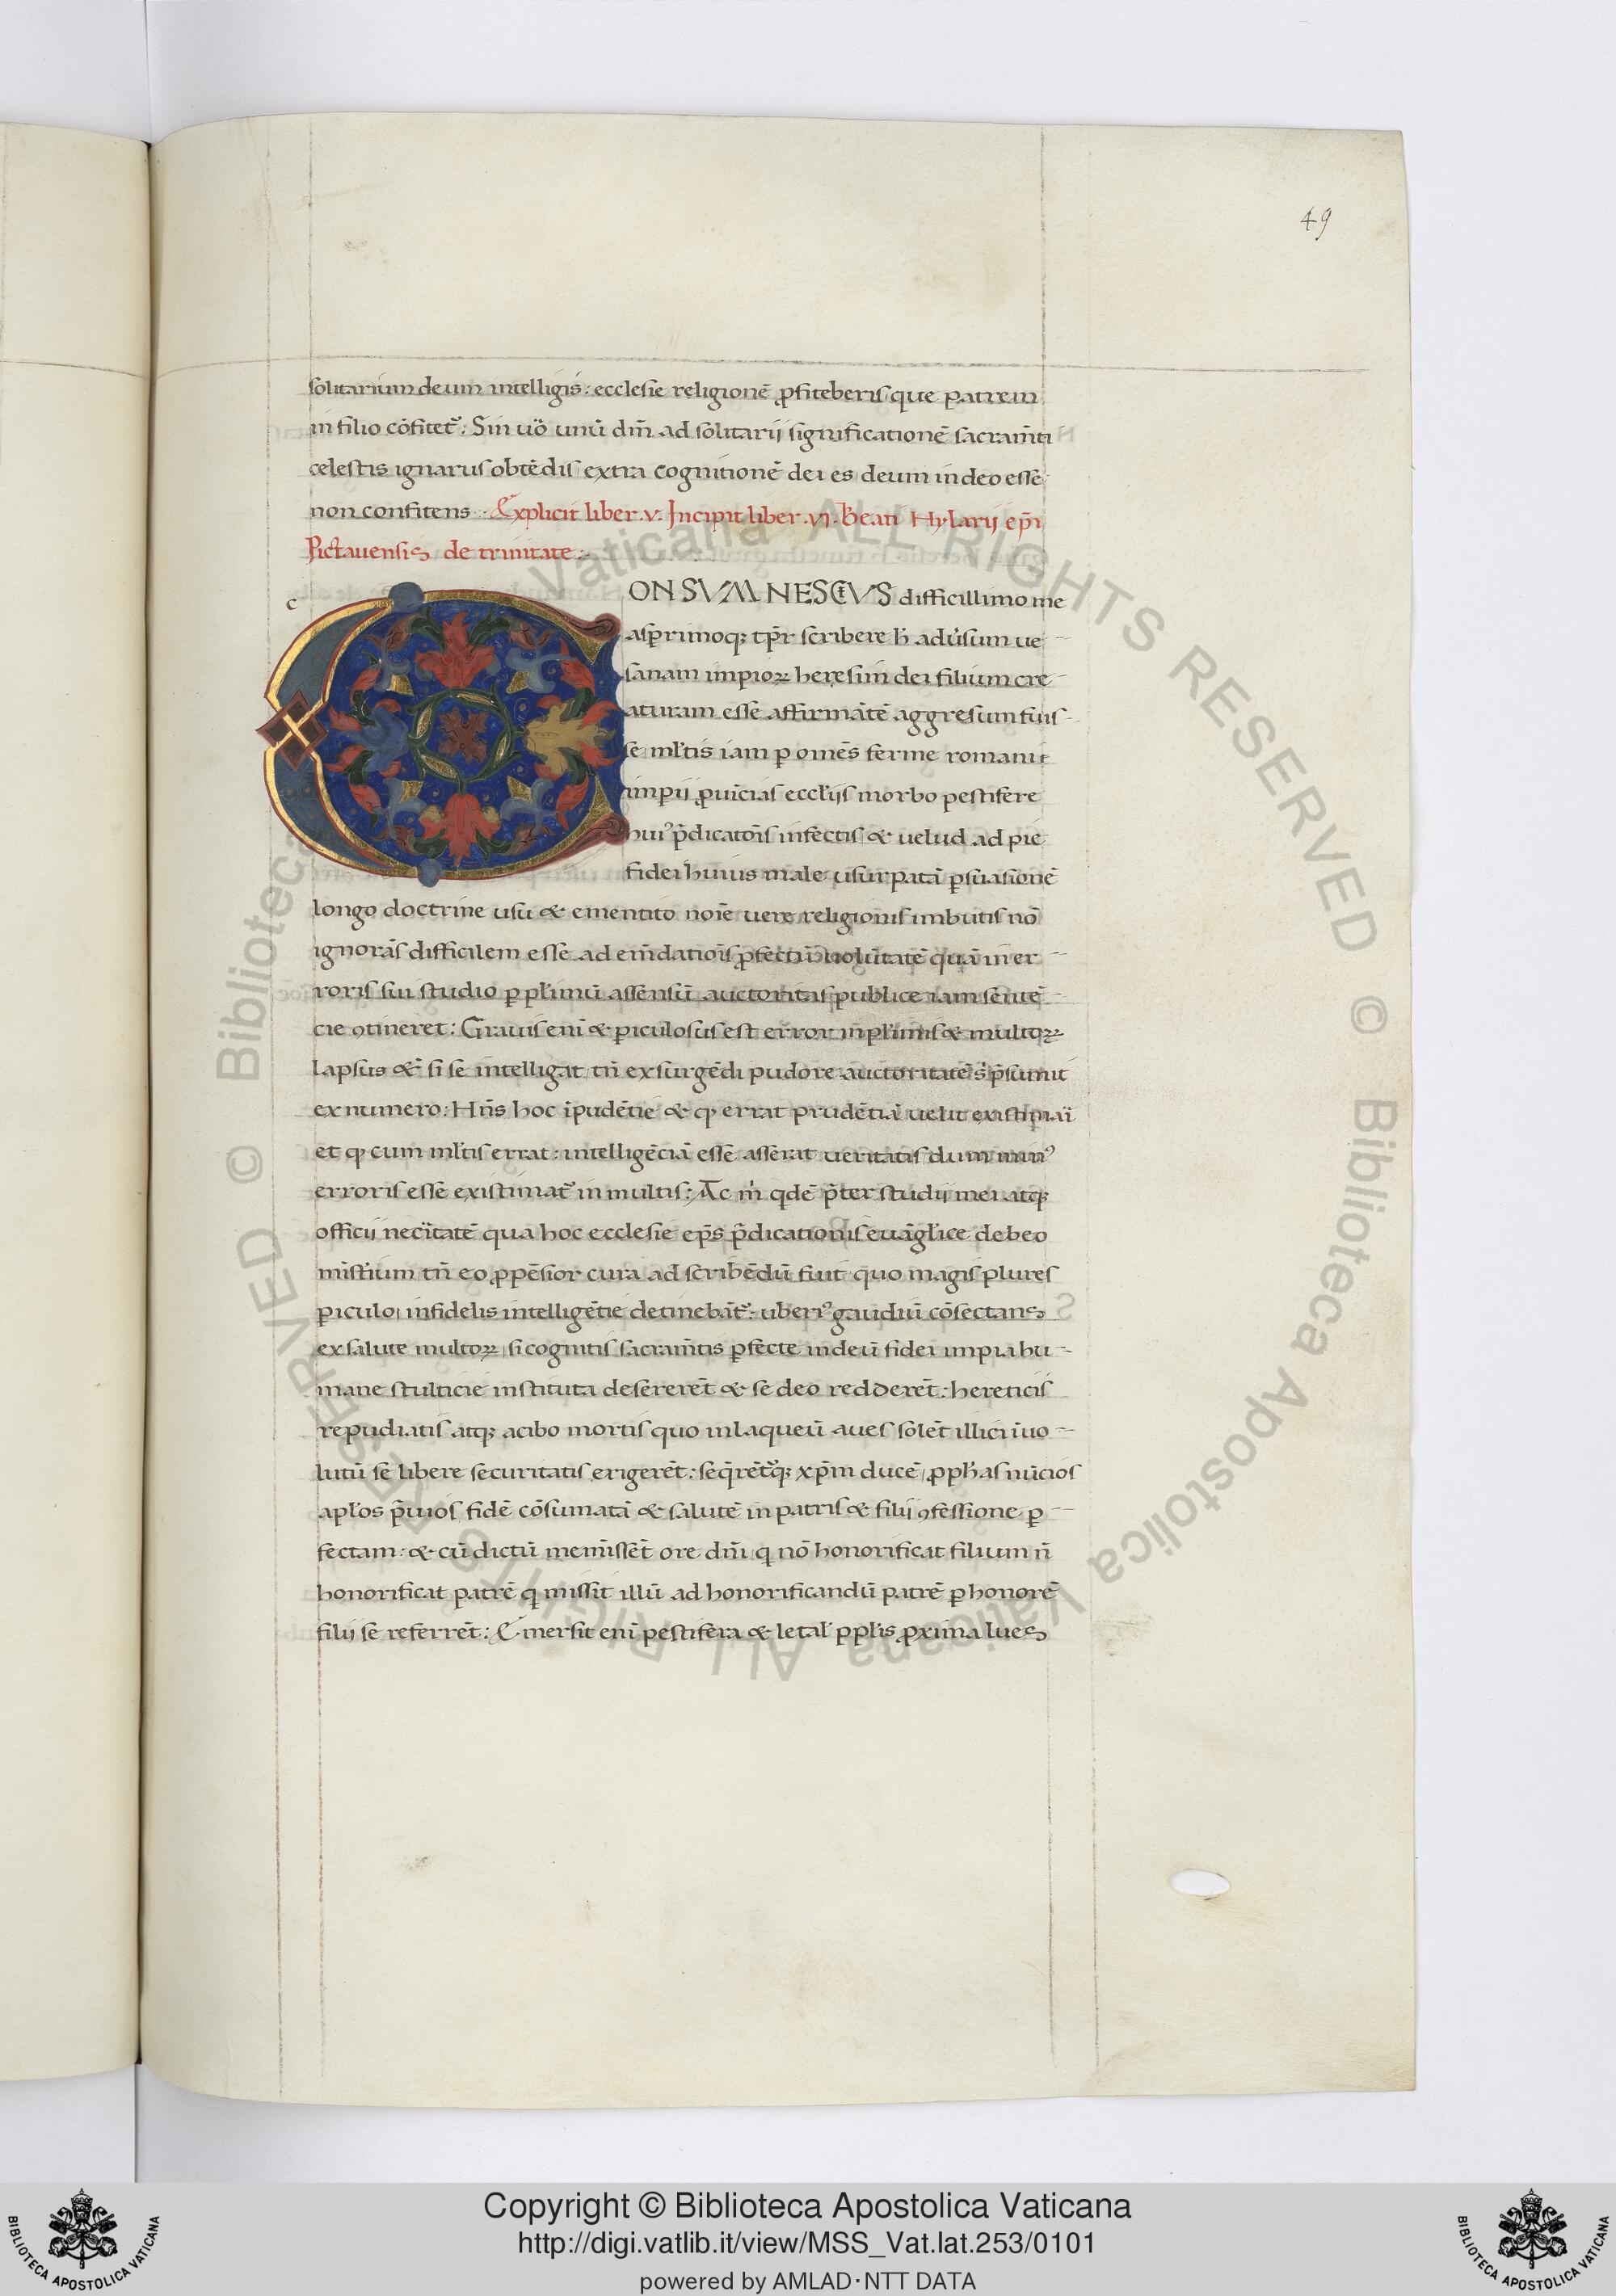 49
solitarium deum intelligis: ecclesie religionē ꝓfiteberis que patrem
in filio cōfitet᷑: Sin uo͛ unū dm̄ ad solitarii significationē sacram̄ti
celestis ignarus obtēdis extra cognitionē dei es deum in deo esse
non confitens Explicit liber .v. Incipit liber .vi. Beati Hylarij epi̅
Pictauensis de trinitate:
c
ON SVM NESCIVS difficillimo me
asꝑrimoqꝫ tp̄r scribere h̄ adu̓sum ue
sanam impioꝝ heresim dei filium cre
aturam esse affirmātē aggresum fuis
se ml̓tis iam ꝑ omēs ferme romani
imperii ꝓuīcias eccl̓ijs morbo pestifere
huiꝰ p̄dicatōis infectis & uelud ad pie
fidei huius male usurpatā ꝑsuasionē
longo doctrine usu & ementito noīe uere religionis imbutis nō
ignorās difficilem esse ad em̄dationis ꝓfectū uolūtatē quā in er
roris sui studio ꝑ pl̓imū assensū auctoritas publice iam
cie ꝯtineret: Grauis eni̅ & ꝑiculosus est error in pl̓imis & multoꝝ
lapsus & si se intelligat tn̄ exsurgēdi pudore auctoritatē s̓ p̄sumit
ex numero: Hn̄s hoc īpudētie & qͥ errat prudētiā uelit
et qͥ cum ml̓tis errat: intelligēciā esse asserat ueritatis dum minꝰ
erroris esse existimat᷑ in multis: Ac m̓ qͥdē p̄ter studij mei atqꝫ
officii necītatē qua hoc ecclesie ep̄s p̄dicationis euāgl̓ice debeo
mist̓ium tn̄ eo ꝓpēsior cura ad scribēdū fuit quo magis plures
ꝑiculo infidelis intelligētie detinebāt᷑: uberiꝰ gaudiū cōsectans
ex salute multoꝝ si cognitis sacram̄tis ꝑfecte in deū fidei impia hu
mane stulticie instituta desererēt & se deo redderēt: hereticis
repudiatis atqꝫ a cibo mortis quo in laqueū aues solēt illici īuo
lutū se libere securitatis erigerēt: seq̄rēt᷑qꝫ xp̄m ducē ꝓph̓as nūcios
apl̓os p̄uios fidē cōsumatā & salutē in patris & filij ꝯfessione ꝑ
fectam: & cū dictū meminissēt ore dn̄i qͥ nō honorificat filium n̄
honorificat patrē qͥ missit illū ad honorificandū patrē ꝑ honorē
filij se referrēt: Emersit eni̅ pestifera & letal̓ ppl̓is ꝓxima lues
Copyright © Biblioteca Apostolica Vaticana
http://digi.vatlib.it/view/MSS_Vat.lat.253/0101
powered by AMLAD·NTT DATA
BIBLIOTECA APOSTOLICA VATICANA
BIBLIOTECA APOSTOLICA VATICANA